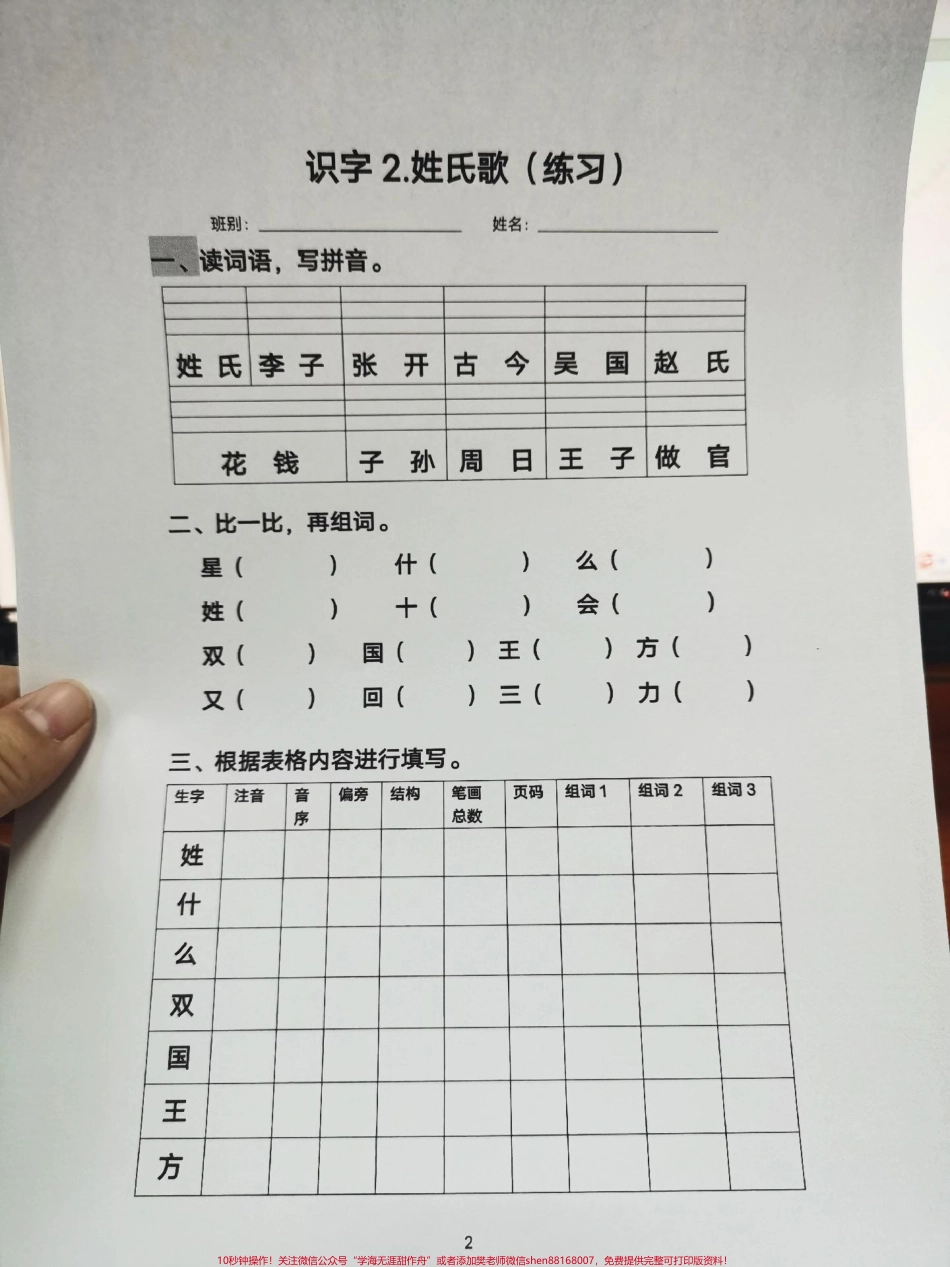 识字 2.姓氏歌（练习）
班别： 姓名：
一、读词语，写拼音。
姓 氏 李 子 张 开 古 今 吴 国 赵 氏
花 钱 子 孙 周 日 王 子 做 官
二、比一比，再组词。
星（ ） 什（ ） 么（ ）
姓（ ） 十（ ） 会（ ）
双（ ） 国（ ） 王（ ） 方（ ）
又（ ） 回（ ） 三（ ） 力（ ）
三、根据表格内容进行填写。
生字 注音 音序 偏旁 结构 笔画总数 页码 组词 1 组词 2 组词 3
姓
什
么
双
国
王
方
2
10秒钟操作！关注微信公众号“学海无涯甜作舟”或者添加樊老师微信shen88168007，免费提供完整可打印版资料！